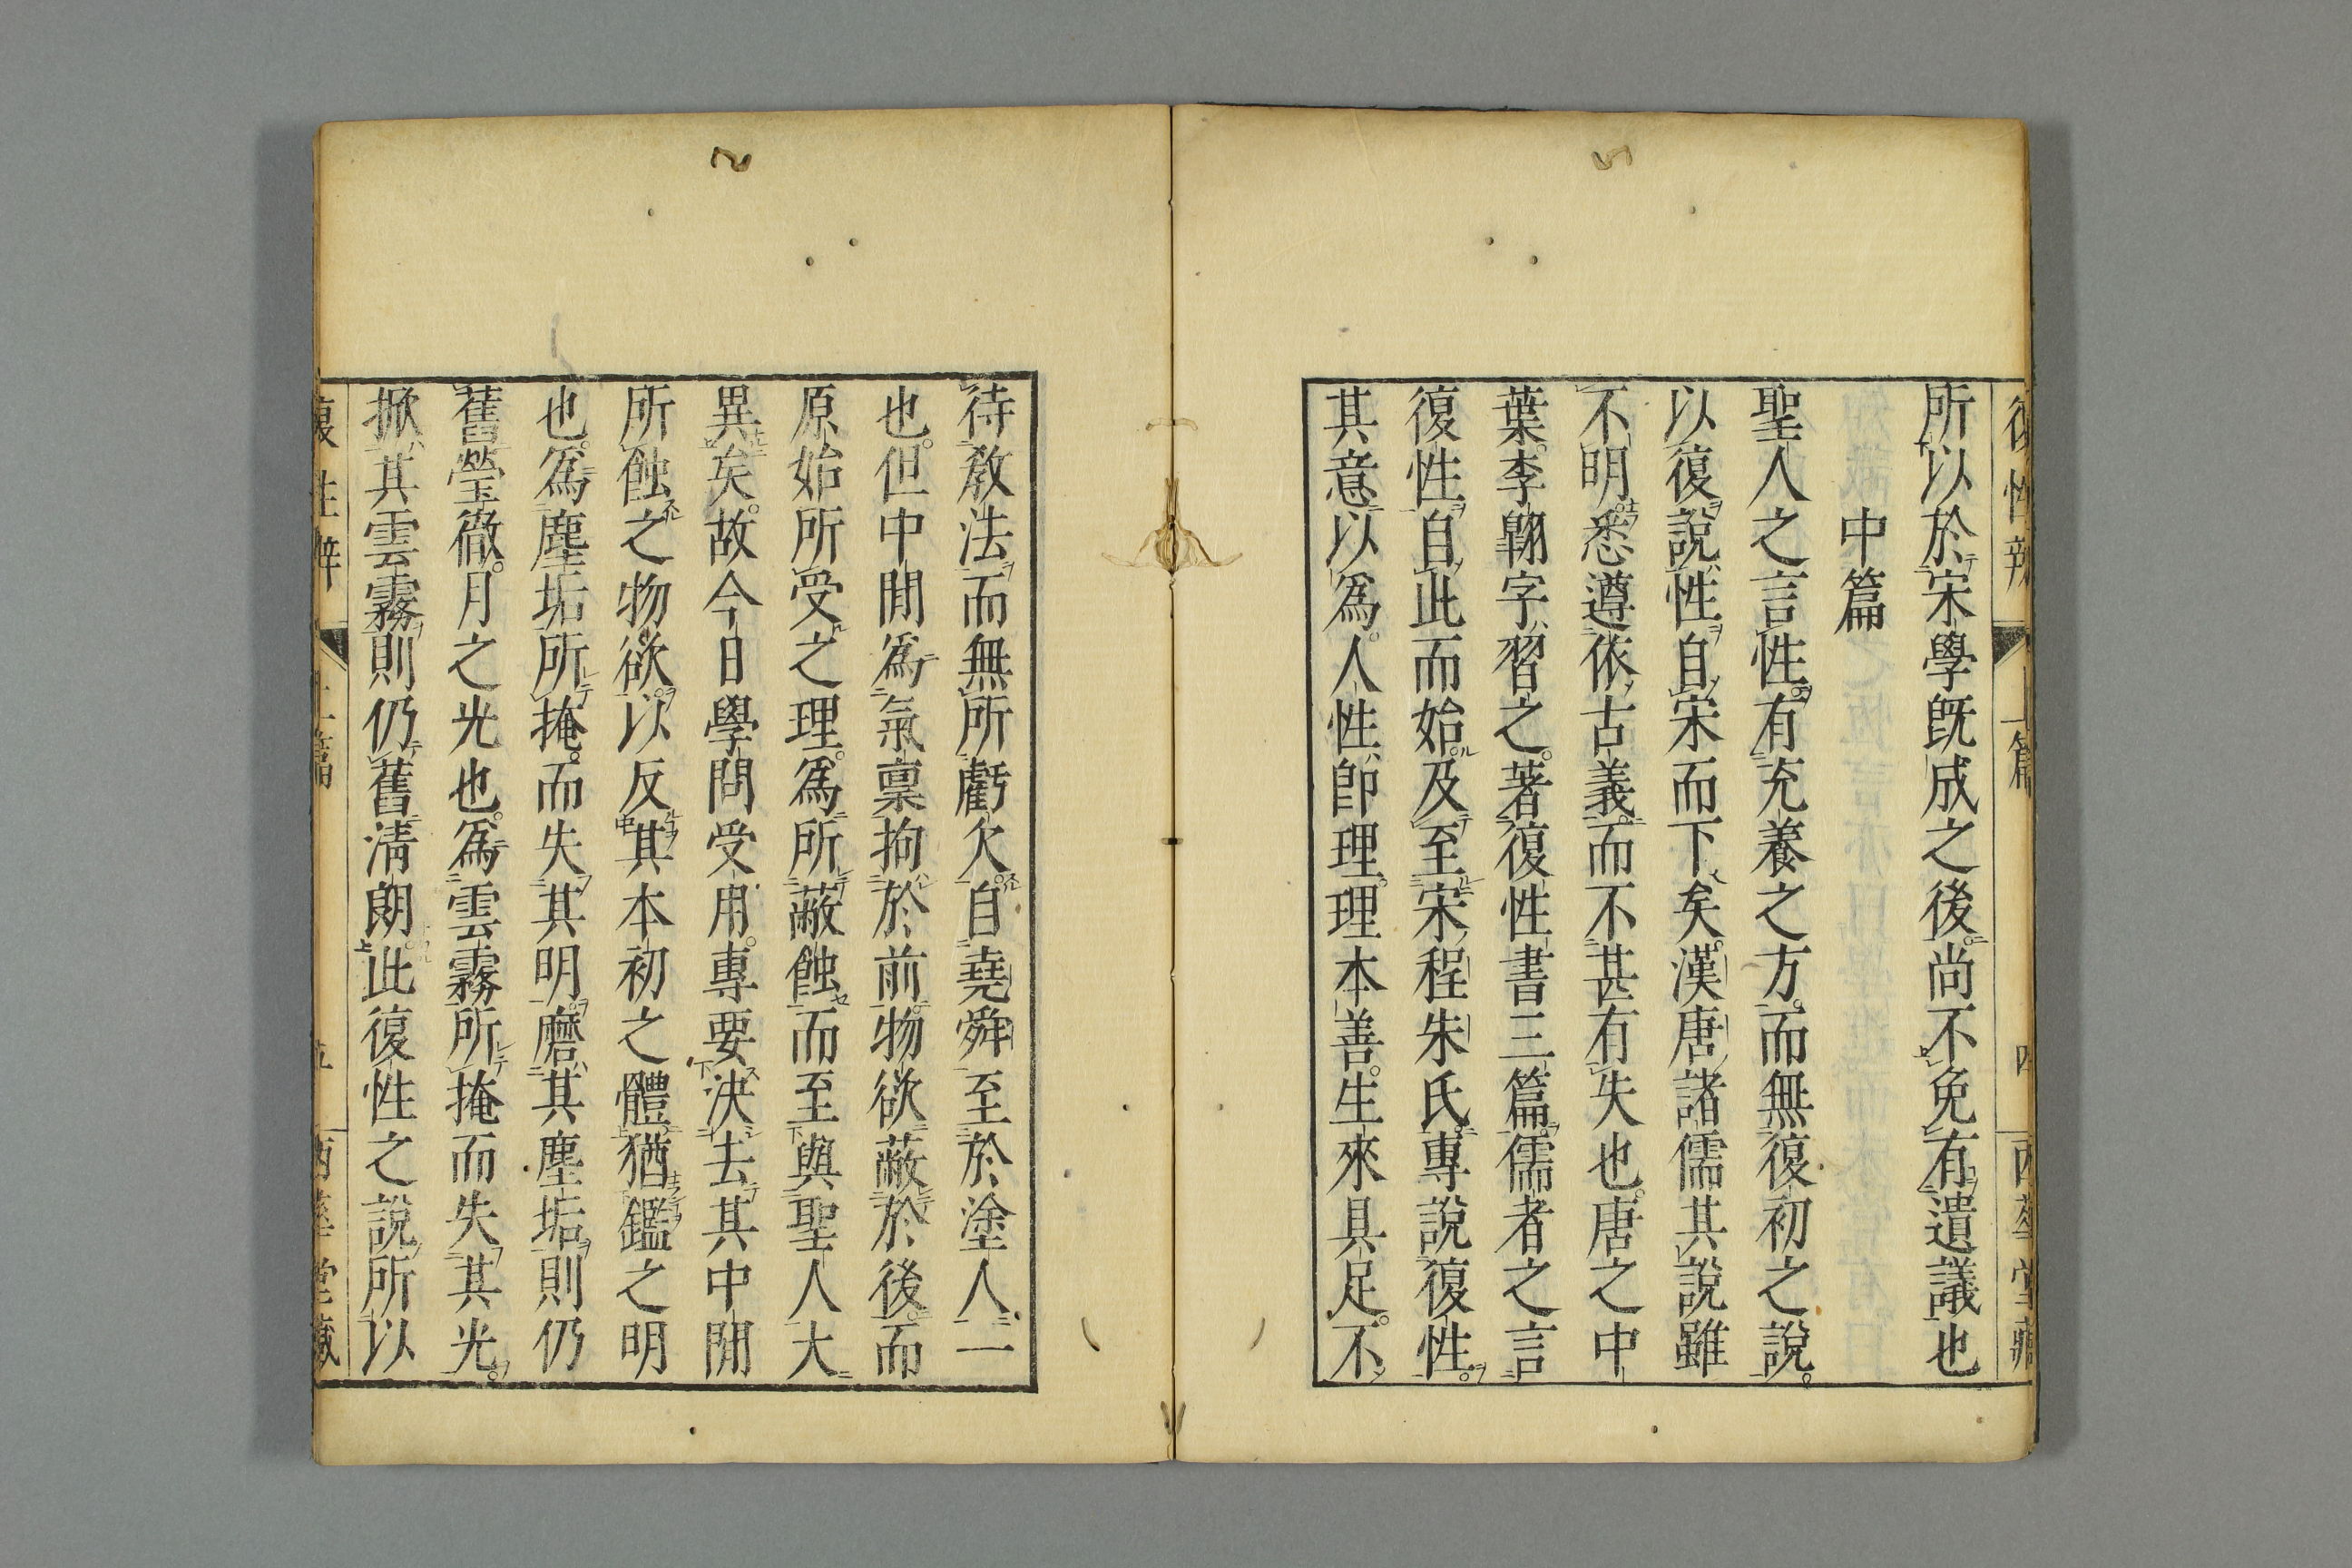 復性辨 上篇 四 西莘堂藏
所以於宋學既成之後。尚不免有遺議也
中篇
聖人之言性。有充養之方。而無復初之說。
以復說性。自宋而下矣。漢唐諸儒其說雖
不明。悉遵依古義。而不甚有失也。唐之中
葉。李翺字習之。著復性書三篇。儒者之言
復性。自此而始。及至宋程朱氏。專說復性。
其意以爲。人性即理。理本善。生來具足。不
待教法。而無所虧欠。自堯舜至於塗人一
也。但中間爲氣稟拘於前。物欲蔽於後。而
原始所受之理。爲所蔽蝕而至與聖人大
異矣。故今日學問受用。專要決去其中間
所蝕之物欲。以反其本初之體。猶鑑之明
也。爲塵垢所掩。而失其明。磨其塵垢則仍
舊瑩徹。月之光也。爲雲霧所掩而失其光。
掀其雲霧則仍舊淸朗。此復性之說所以
復性辨 上篇 五 西莘堂藏